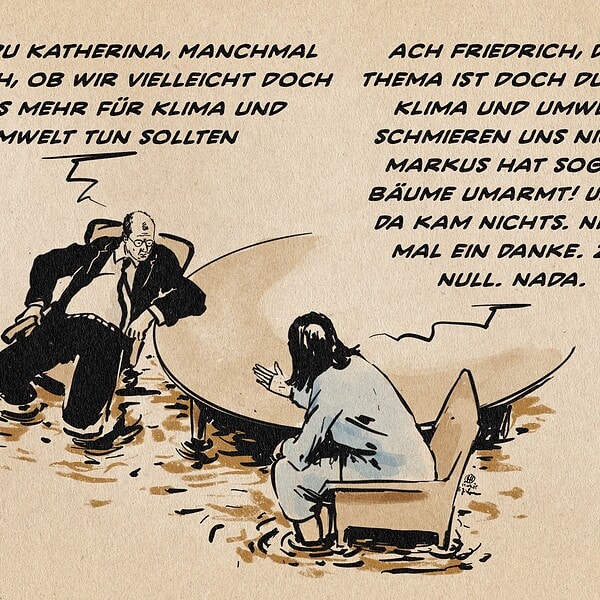 ZU KATHERINA, MANCHMAL
H, OB WIR VIELLEICHT DOCH
S MEHR FÜR KLIMA UND
MWELT TUN SOLLTEN
ACH FRIEDRICH, D
THEMA IST DOCH DU
KLIMA UND UMWE
SCHMIEREN UNS NI
MARKUS HAT SOG
BÄUME UMARMT! U
DA KAM NICHTS. NI
MAL EIN DANKE. Z
NULL. NADA.